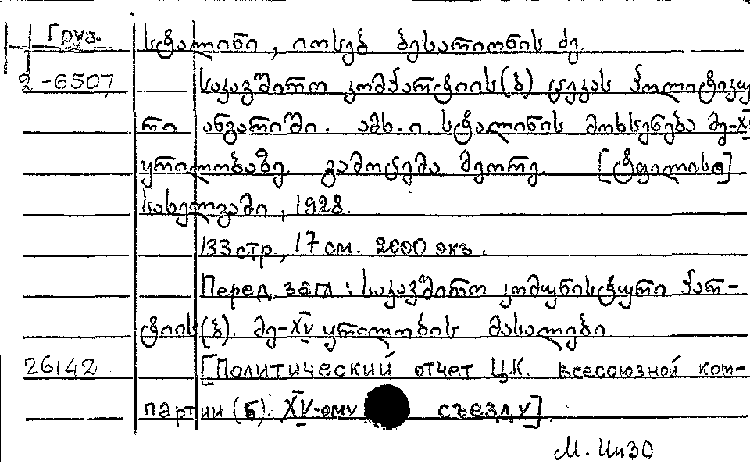 Груз. სტალინი, იოსებ ბესარიონის ძე.
2-6507 საკავშირო კომპარტიის(ბ) ცეკას პოლიტიკუ
რი ანგარიში. ამხ. ი. სტალინის მოხსენება მე-XV
ყრილობაზე. გამოცემა მეორე. [ტფილისი]
სახელგამი, 1928.
133 стр, 17 см. 2000 экз.
Перед загл: საკავშირო კომუნისტური პარ-
ტიის(ბ). მე-XV ყრილობის მასალები
26142 [Политический отчет ЦК. всесоюзной ком-
партии (б). XV-ому съезду].